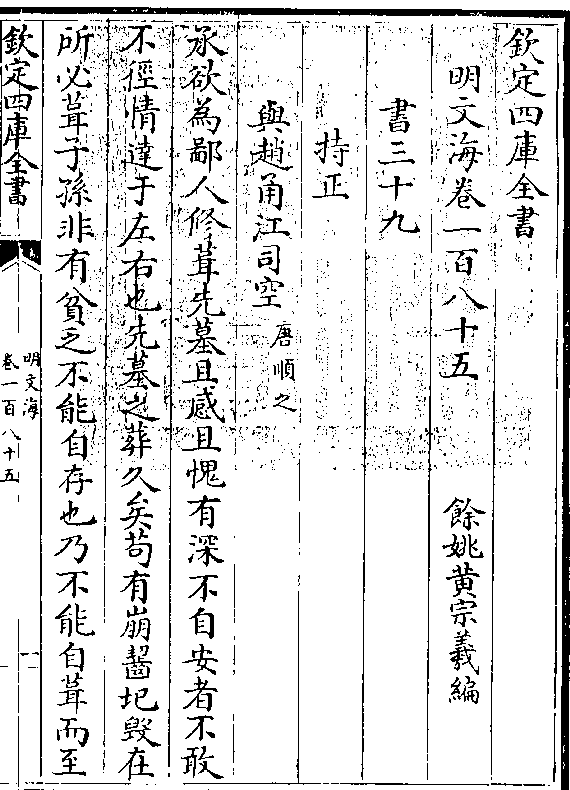 欽定四庫全書
明文海卷一百八十五
餘姚黄宗羲編
書三十九
持正
與趙甬江司空
唐順之
承欲為鄙人修葺先墓且感且愧有深不自安者不敢
不徑情達于左右也先墓之葬久矣苟有崩齧圯毀在
所必葺子孫非有貧乏不能自存也乃不能自葺而至
欽定四庫全書
明文海
卷一百八十五
一